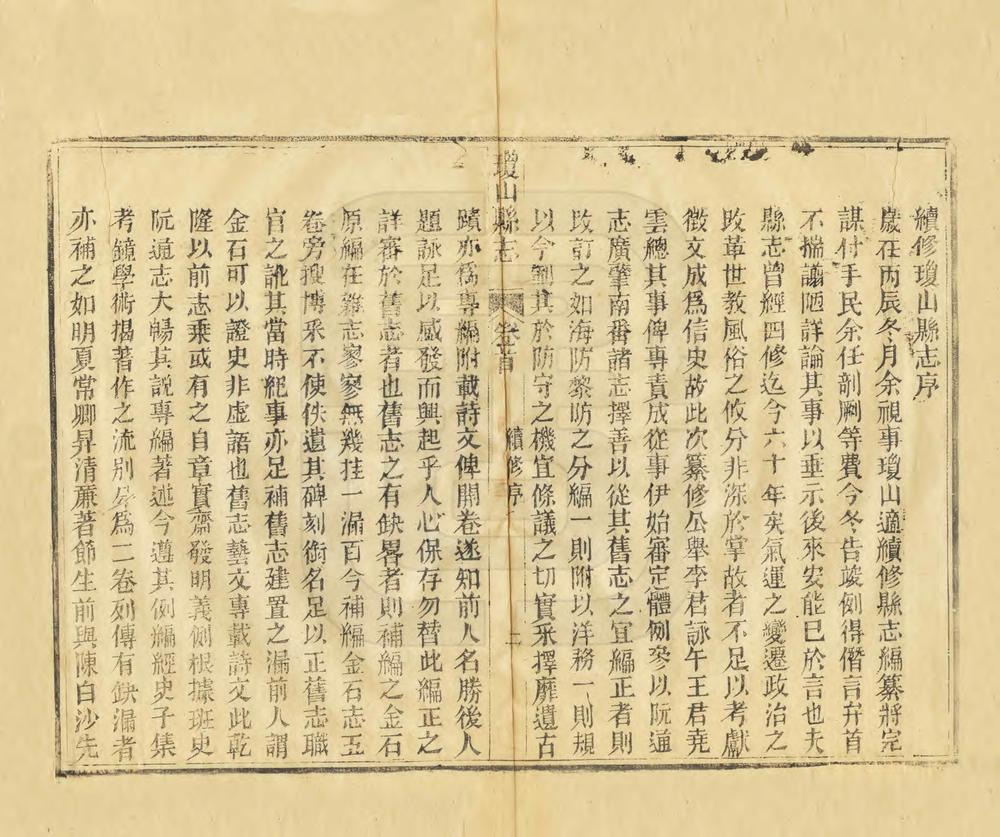 續修瓊山縣志序
歲在丙辰冬月余視事瓊山適續修縣志編纂將完
謀付手民余任剞劂等費今冬告竣例得僭言弁首
不揣譾陋詳論其事以垂示後來安能已於言也夫
縣志曾經四修迄今六十年矣氣運之變遷政治之
改革世教風俗之攸分非深於掌故者不足以考獻
徵文成爲信史故此次纂修公舉李君詠午王君堯
雲總其事俾專責成從事伊始審定體例參以阮通
志廣肇南番諸志擇善以從其舊志之宜編正者則
改訂之如海防黎防之分編一則附以洋務一則規
以今制其於防守之機宜條議之切實采擇靡遺古
瓊山縣志 卷首 續修序 二
蹟亦爲專編附載詩文俾開卷遂知前人名勝後人
題詠足以感發而興起乎人心保存勿替此編正之
詳審於舊志者也舊志之有缺畧者則補編之金石
原編在雜志寥寥無幾挂一漏百今補編金石志五
卷旁搜博采不使佚遺其碑刻銜名足以正舊志職
官之訛其當時紀事亦足補舊志建置之漏前人謂
金石可以證史非虛語也舊志藝文專載詩文此乾
隆以前志乘或有之自章實齋發明義例根據班史
阮通志大暢其說專編著述今遵其例編經史子集
考鏡學術揭著作之流別 爲二卷列傳有缺漏者
亦補之如明夏常卿昇清亷著節生前與陳白沙先